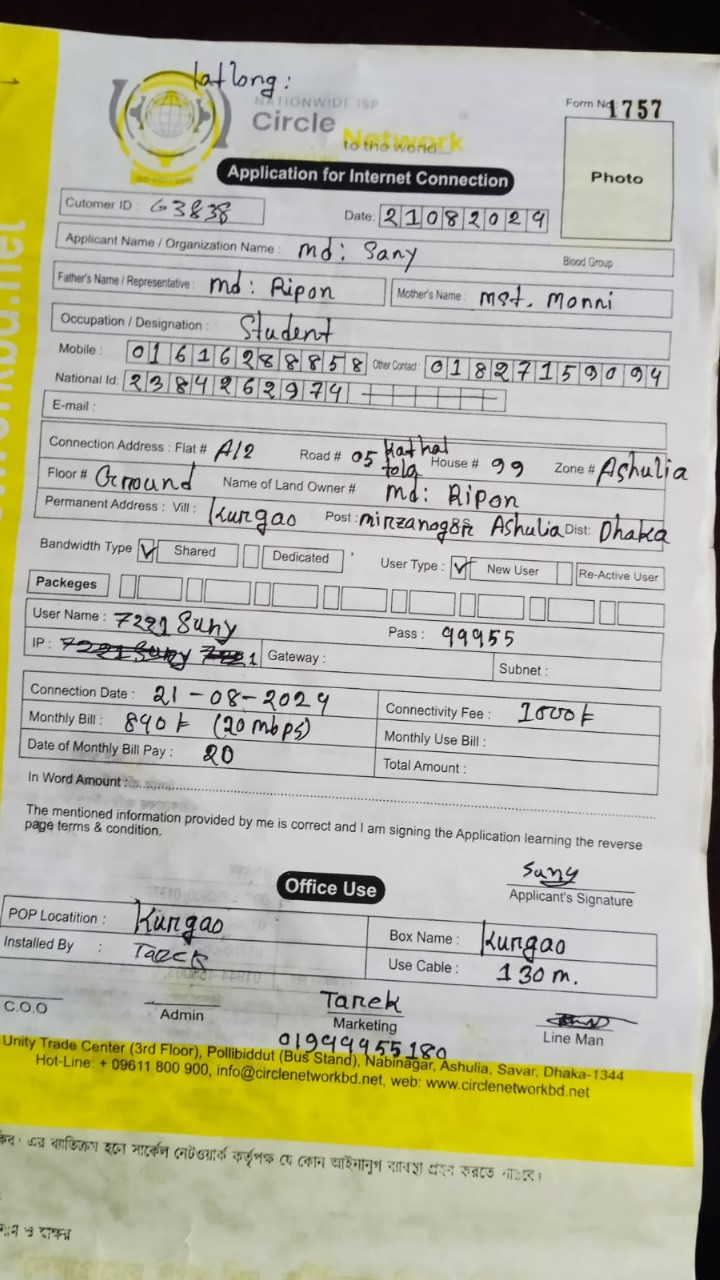 latlong:
NATIONWIDE ISP
Circle Network
to the world
Form No 1757
Photo
Application for Internet Connection
Cutomer ID : G3838
Date: 21082024
Applicant Name / Organization Name : md: Sany
Blood Group :
Father's Name / Representative : md: Ripon
Mother's Name : mst. Monni
Occupation / Designation : Student
Mobile : 01616288858 Other Contact 01827159094
National Id: 2384262974
E-mail :
Connection Address : Flat # A/2 Road # 05 Kathal tola House # 99 Zone # Ashulia
Floor # Ground Name of Land Owner # md: Ripon
Permanent Address : Vill : Kurgao Post : Ashulia Dist: Dhaka
Bandwidth Type ✓ Shared Dedicated User Type : ✓ New User Re-Active User
Packeges
User Name : 7221 Sany Pass : 99955
IP : Gateway : Subnet :
Connection Date : 21-08-2024 Connectivity Fee : 1000t
Monthly Bill : 840t (20 mbps) Monthly Use Bill :
Date of Monthly Bill Pay : 20 Total Amount :
In Word Amount :
The mentioned information provided by me is correct and I am signing the Application learning the reverse
page terms & condition.
Sany
Applicant's Signature
Office Use
POP Locatition : Kurgao Box Name : Kurgao
Installed By : Tarek Use Cable : 130 m.
C.O.O Admin Tarek Marketing Line Man
01944955180
Unity Trade Center (3rd Floor), Pollibiddut (Bus Stand), Nabinagar, Ashulia, Savar, Dhaka-1344
Hot-Line: + 09611 800 900, info@circlenetworkbd.net, web: www.circlenetworkbd.net
এর ব্যতিক্রম হলে সার্কেল নেটওয়ার্ক কর্তৃপক্ষ যে কোন আইনানুগ ব্যবস্থা গ্রহন করতে পারবে।